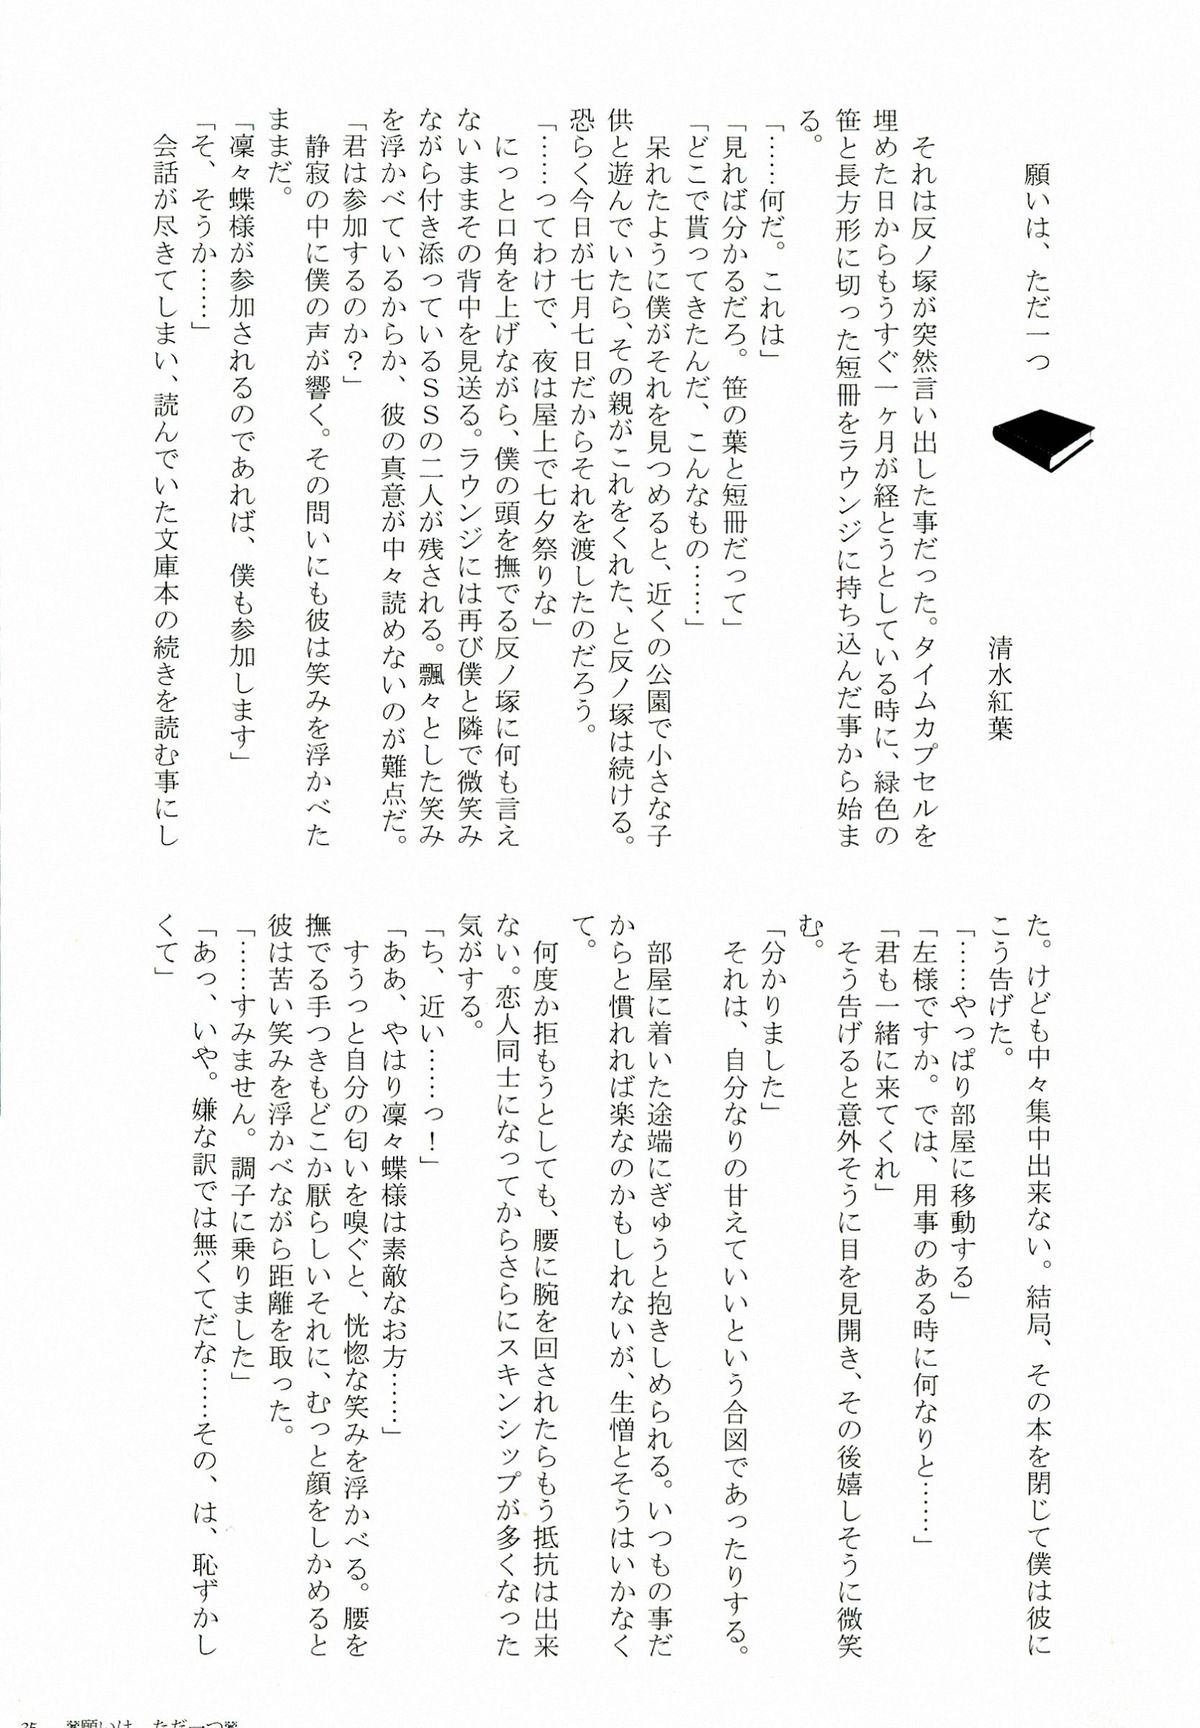 願いは、ただ一つ
清水紅葉
それは反ノ塚が突然言い出した事だった。タイムカプセルを
埋めた日からもうすぐ一ヶ月が経とうとしている時に、緑色の
笹と長方形に切った短冊をラウンジに持ち込んだ事から始ま
る。
「……何だ。これは」
「見れば分かるだろ。笹の葉と短冊だって」
「どこで貰ってきたんだ、こんなもの……」
呆れたように僕がそれを見つめると、近くの公園で小さな子
供と遊んでいたら、その親がこれをくれた、と反ノ塚は続ける。
恐らく今日が七月七日だからそれを渡したのだろう。
「……ってわけで、夜は屋上で七夕祭りな」
にっと口角を上げながら、僕の頭を撫でる反ノ塚に何も言え
ないままその背中を見送る。ラウンジには再び僕と隣で微笑み
ながら付き添っているＳＳの二人が残される。飄々とした笑み
を浮かべているからか、彼の真意が中々読めないのが難点だ。
「君は参加するのか？」
静寂の中に僕の声が響く。その問いにも彼は笑みを浮かべた
ままだ。
「凜々蝶様が参加されるのであれば、僕も参加します」
「そ、そうか……」
会話が尽きてしまい、読んでいた文庫本の続きを読む事にし
た。けども中々集中出来ない。結局、その本を閉じて僕は彼に
こう告げた。
「……やっぱり部屋に移動する」
「左様ですか。では、用事のある時に何なりと……」
「君も一緒に来てくれ」
そう告げると意外そうに目を見開き、その後嬉しそうに微笑
む。
「分かりました」
それは、自分なりの甘えていいという合図であったりする。
部屋に着いた途端にぎゅうと抱きしめられる。いつもの事だ
からと慣れれば楽なのかもしれないが、生憎とそうはいかなく
て。
何度か拒もうとしても、腰に腕を回されたらもう抵抗は出来
ない。恋人同士になってからさらにスキンシップが多くなった
気がする。
「ち、近い……っ！」
「ああ、やはり凜々蝶様は素敵なお方……」
すうっと自分の匂いを嗅ぐと、恍惚な笑みを浮かべる。腰を
撫でる手つきもどこか厭らしいそれに、むっと顔をしかめると
彼は苦い笑みを浮かべながら距離を取った。
「……すみません。調子に乗りました」
「あっ、いや。嫌な訳では無くてだな……その、は、恥ずかし
くて」